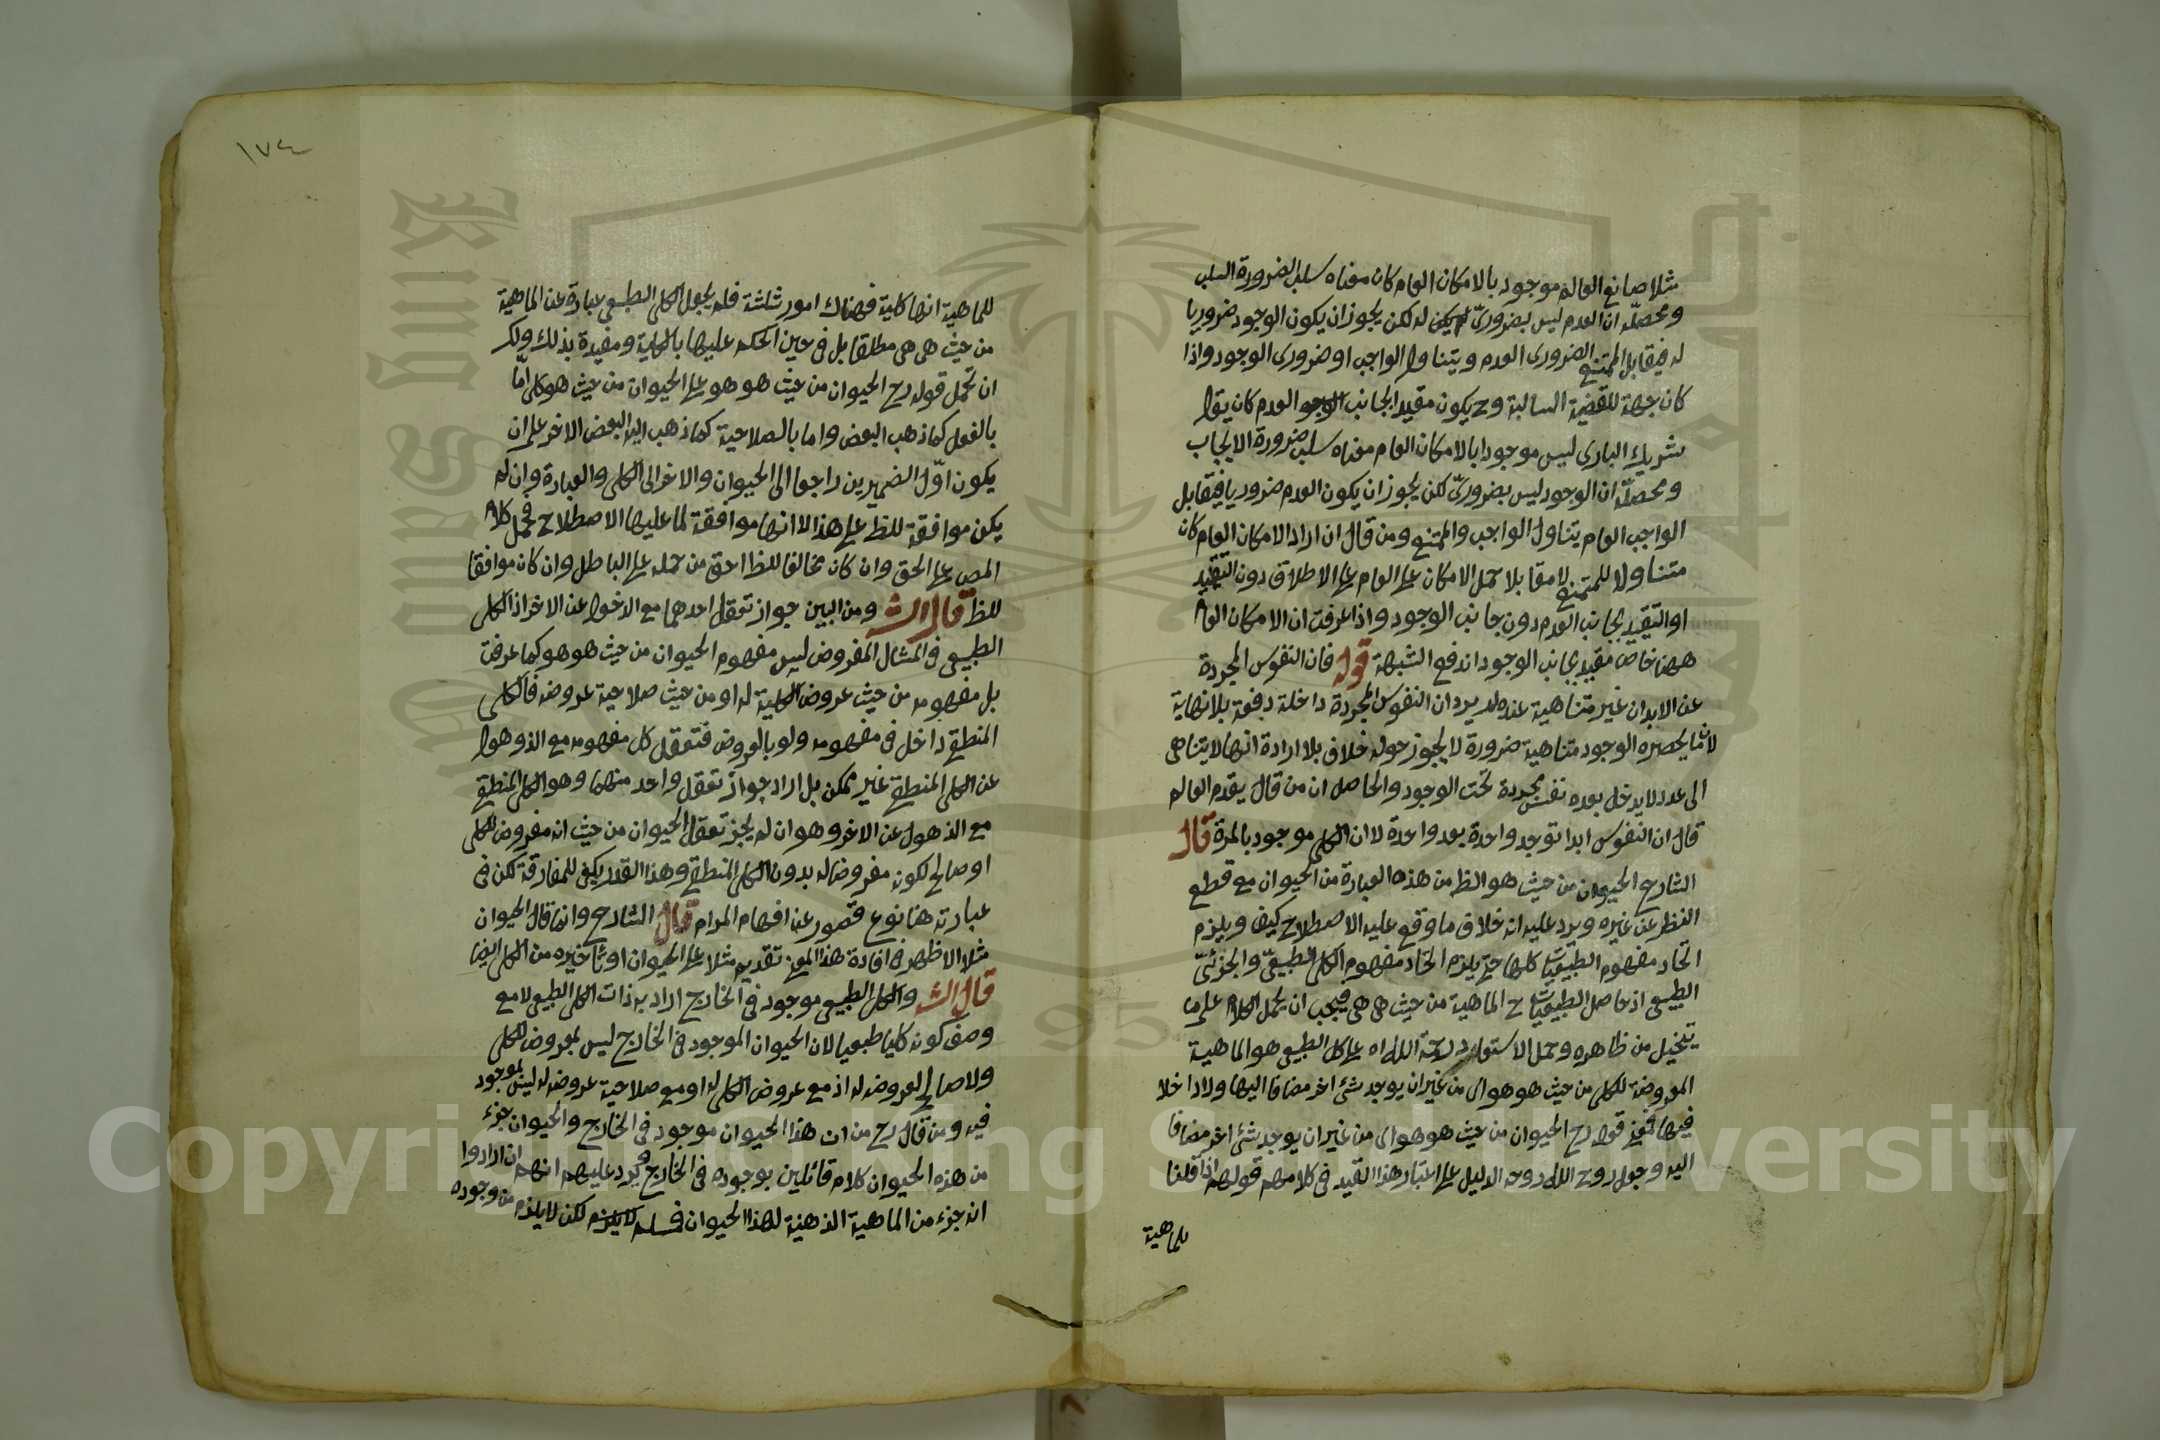 مثلا صانع العالم موجود بالامكان العام كان معناه سلب الضرورة السلب
ومحصله ان العدم ليس بضروري له لكن يجوز ان يكون الوجود ضروريا
له فيقابل الممتنع الضروري العدم ويتناول الواجب او ضروري الوجود واذا
كان جهة للقضية السالبة وح يكون مقيدا بجانب العدم كان يقال
شريك الباري ليس موجودا بالامكان العام معناه سلب ضرورة الايجاب
ومحصله ان الوجود ليس بضروري لكن يجوز ان يكون العدم ضروريا فيقابل
الواجب العام يتناول الواجب والممتنع ومن قال ان اراد الامكان العام كان
متناولا للممتنع لا مقابلا حمل الامكان على العام على الاطلاق دون التقييد
او التقييد بجانب العدم دون جانب الوجود واذا عرفت ان الامكان العام
ههنا خاص مقيد بجانب الوجود اندفع الشبهة قوله فان النفوس المجردة
عن الابدان غير متناهية عنده لم يرد ان النفوس المجردة داخلة دفعة بلا نهاية
لان ما يحصره الوجود متناهية ضرورة لا يجوز حوله خلاف بلا ارادة انها لا يتناهى
الى عدد لا يدخل بعده نفس مجردة تحت الوجود والحاصل ان من قال بقدم العالم
قال ان النفوس ابدا توجد واحدة بعد واحدة لا ان الكلي موجود بالمرة قال
الشارح الحيوان من حيث هو الظ من هذه العبارة من الحيوان مع قطع
النظر عن غيره ويرد عليه انه خلاف ما وقع عليه الاصطلاح كيف ويلزم
اتحاد مفهوم الطبيعيات كلها حتى يلزم اتحاد مفهوم الكلي الطبيعي والجزئي
الطبيعي اذ حاصل الطبيعيات ح الماهية من حيث هي هي فيجب ان يحمل الكلام على ما
يتخيل من ظاهره وحمل الاستعداد رحمة الله اه على كل الطبيعي هو الماهية
المعروضة للكلي من حيث هو هو اى من غير ان يوجد شئ اخر مضافا اليها ولا داخلا
فيها فمعنى قوله رح الحيوان من حيث هو هو اى من غير ان يوجد شئ اخر مضافا
اليه وجعل روح الله روحه الدليل على اعتبار هذا القيد في كلامهم قولهم اذا قلنا
للماهية
١٧٤
للماهية انها كلية فهناك امور ثلثة فلم يجعل الكلي الطبيعي عبارة عن الماهية
من حيث هي هي مطلقا بل في حين الحكم عليها بالكلية ومقيدة بذلك ولك
ان تحمل قوله رح الحيوان من حيث هو هو على الحيوان من حيث هو كلي اما
بالفعل كما ذهب البعض واما بالصلاحية كما ذهب اليه البعض الاخر على ان
يكون اول الضميرين راجعا الى الحيوان والاخر الى الكلي والعبارة وان لم
يكن موافقة للظ على هذا الا انها موافقة لما عليها الاصطلاح فحمل كلام
المص على الحق وان كان مخالفا للظ احق من حمله على الباطل وان كان موافقا
للظ قال الش ومن البين جواز تعقل احدهما مع الذهول عن الاخر اذ الكلي
الطبيعي في المثال المفروض ليس مفهوم الحيوان من حيث هو هو كما عرفت
بل مفهومه من حيث عروض الكلية له او من حيث صلاحية عروضه فالكلي
المنطقي داخل في مفهومه ولو بالعروض فتعقل كل مفهومه مع الذهول
عن الكلي المنطقي غير ممكن بل اراد جواز تعقل واحد منهما وهو الكلي المنطقي
مع الذهول عن الاخر وهو ان لم يجز تعقل الحيوان من حيث انه معروض للكلي
او صالح لكونه معروضا له بدون الكلي المنطقي وهذا القدر يكفي للمفارقة لكن في
عبارته هنا نوع قصور عن افهام المرام قال الشارح وانما قال الحيوان
مثلا الاظهر في افادة هذا المعنى تقديم مثلا على الحيوان او تأخيره من الكلي ايضا
قال الش والكلي الطبيعي موجود في الخارج اراد به ذات الكلي الطبيعي لا مع
وصف كونه كليا طبعيا لان الحيوان الموجود في الخارج ليس بمعروض للكلي
ولا صالح لعروضه له اذ مع عروض الكلي له او مع صلاحية عروضه له ليس بموجود
فيه ومن قال رح من ان هذا الحيوان موجود في الخارج والحيوان جزء
من هذه الحيوان كلام قائلين بوجوده في الخارج ويرد عليهم انهم ان ارادوا
انه جزء من الماهية الذهنية لهذا الحيوان فمسلم لكن لا يلزم من وجوده